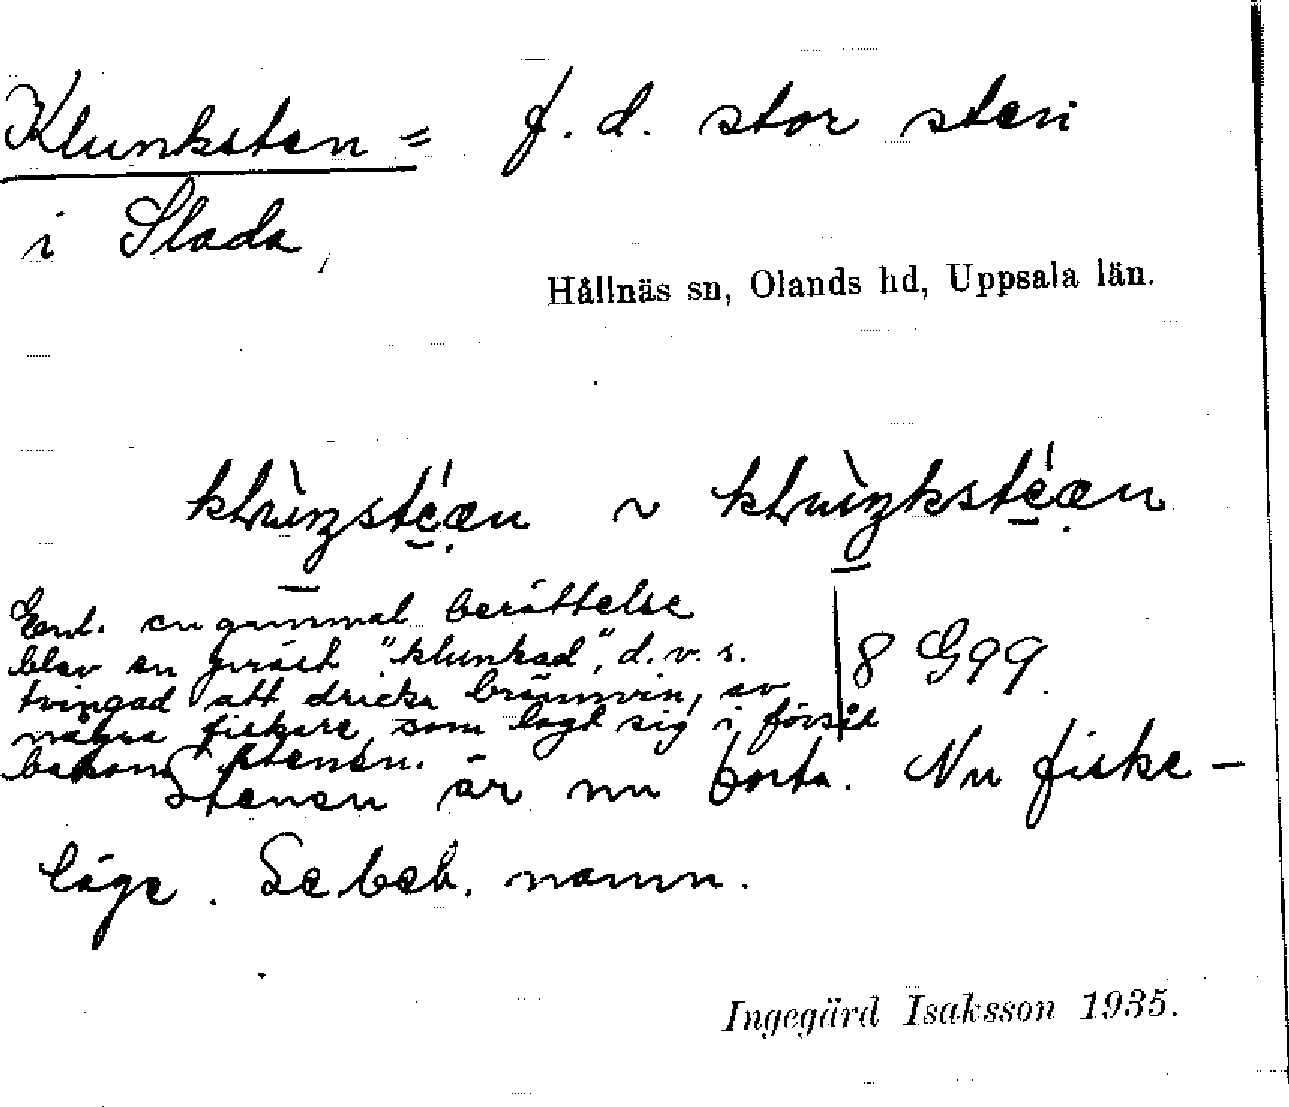 Klunksten = f. d. stor sten
i Slada,
Hållnäs sn, Olands hd, Uppsala län.
~
Enl. en gammal berättelse
blev en präst "klunkad", d.v.s.
tvingad att dricka brännvin, av
några fiskare, som lagt sig i försåt
bakom stenen.
8 G99.
Stenen är nu borta. Nu fiske-
läge. Se beb. namn.
Ingegärd Isaksson 1935.